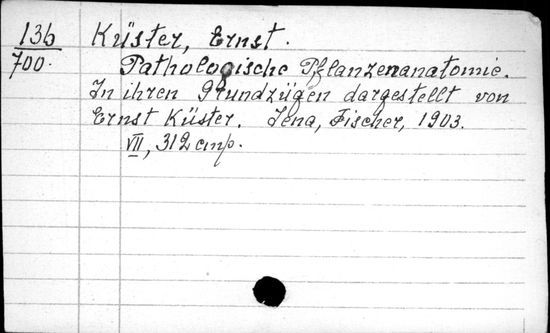 136 Küster, Ernst.
700. Pathologische Pflanzenanatomie.
In ihren Grundzügen dargestellt von
Ernst Küster. Jena, Fischer, 1903.
VII, 312 стр.